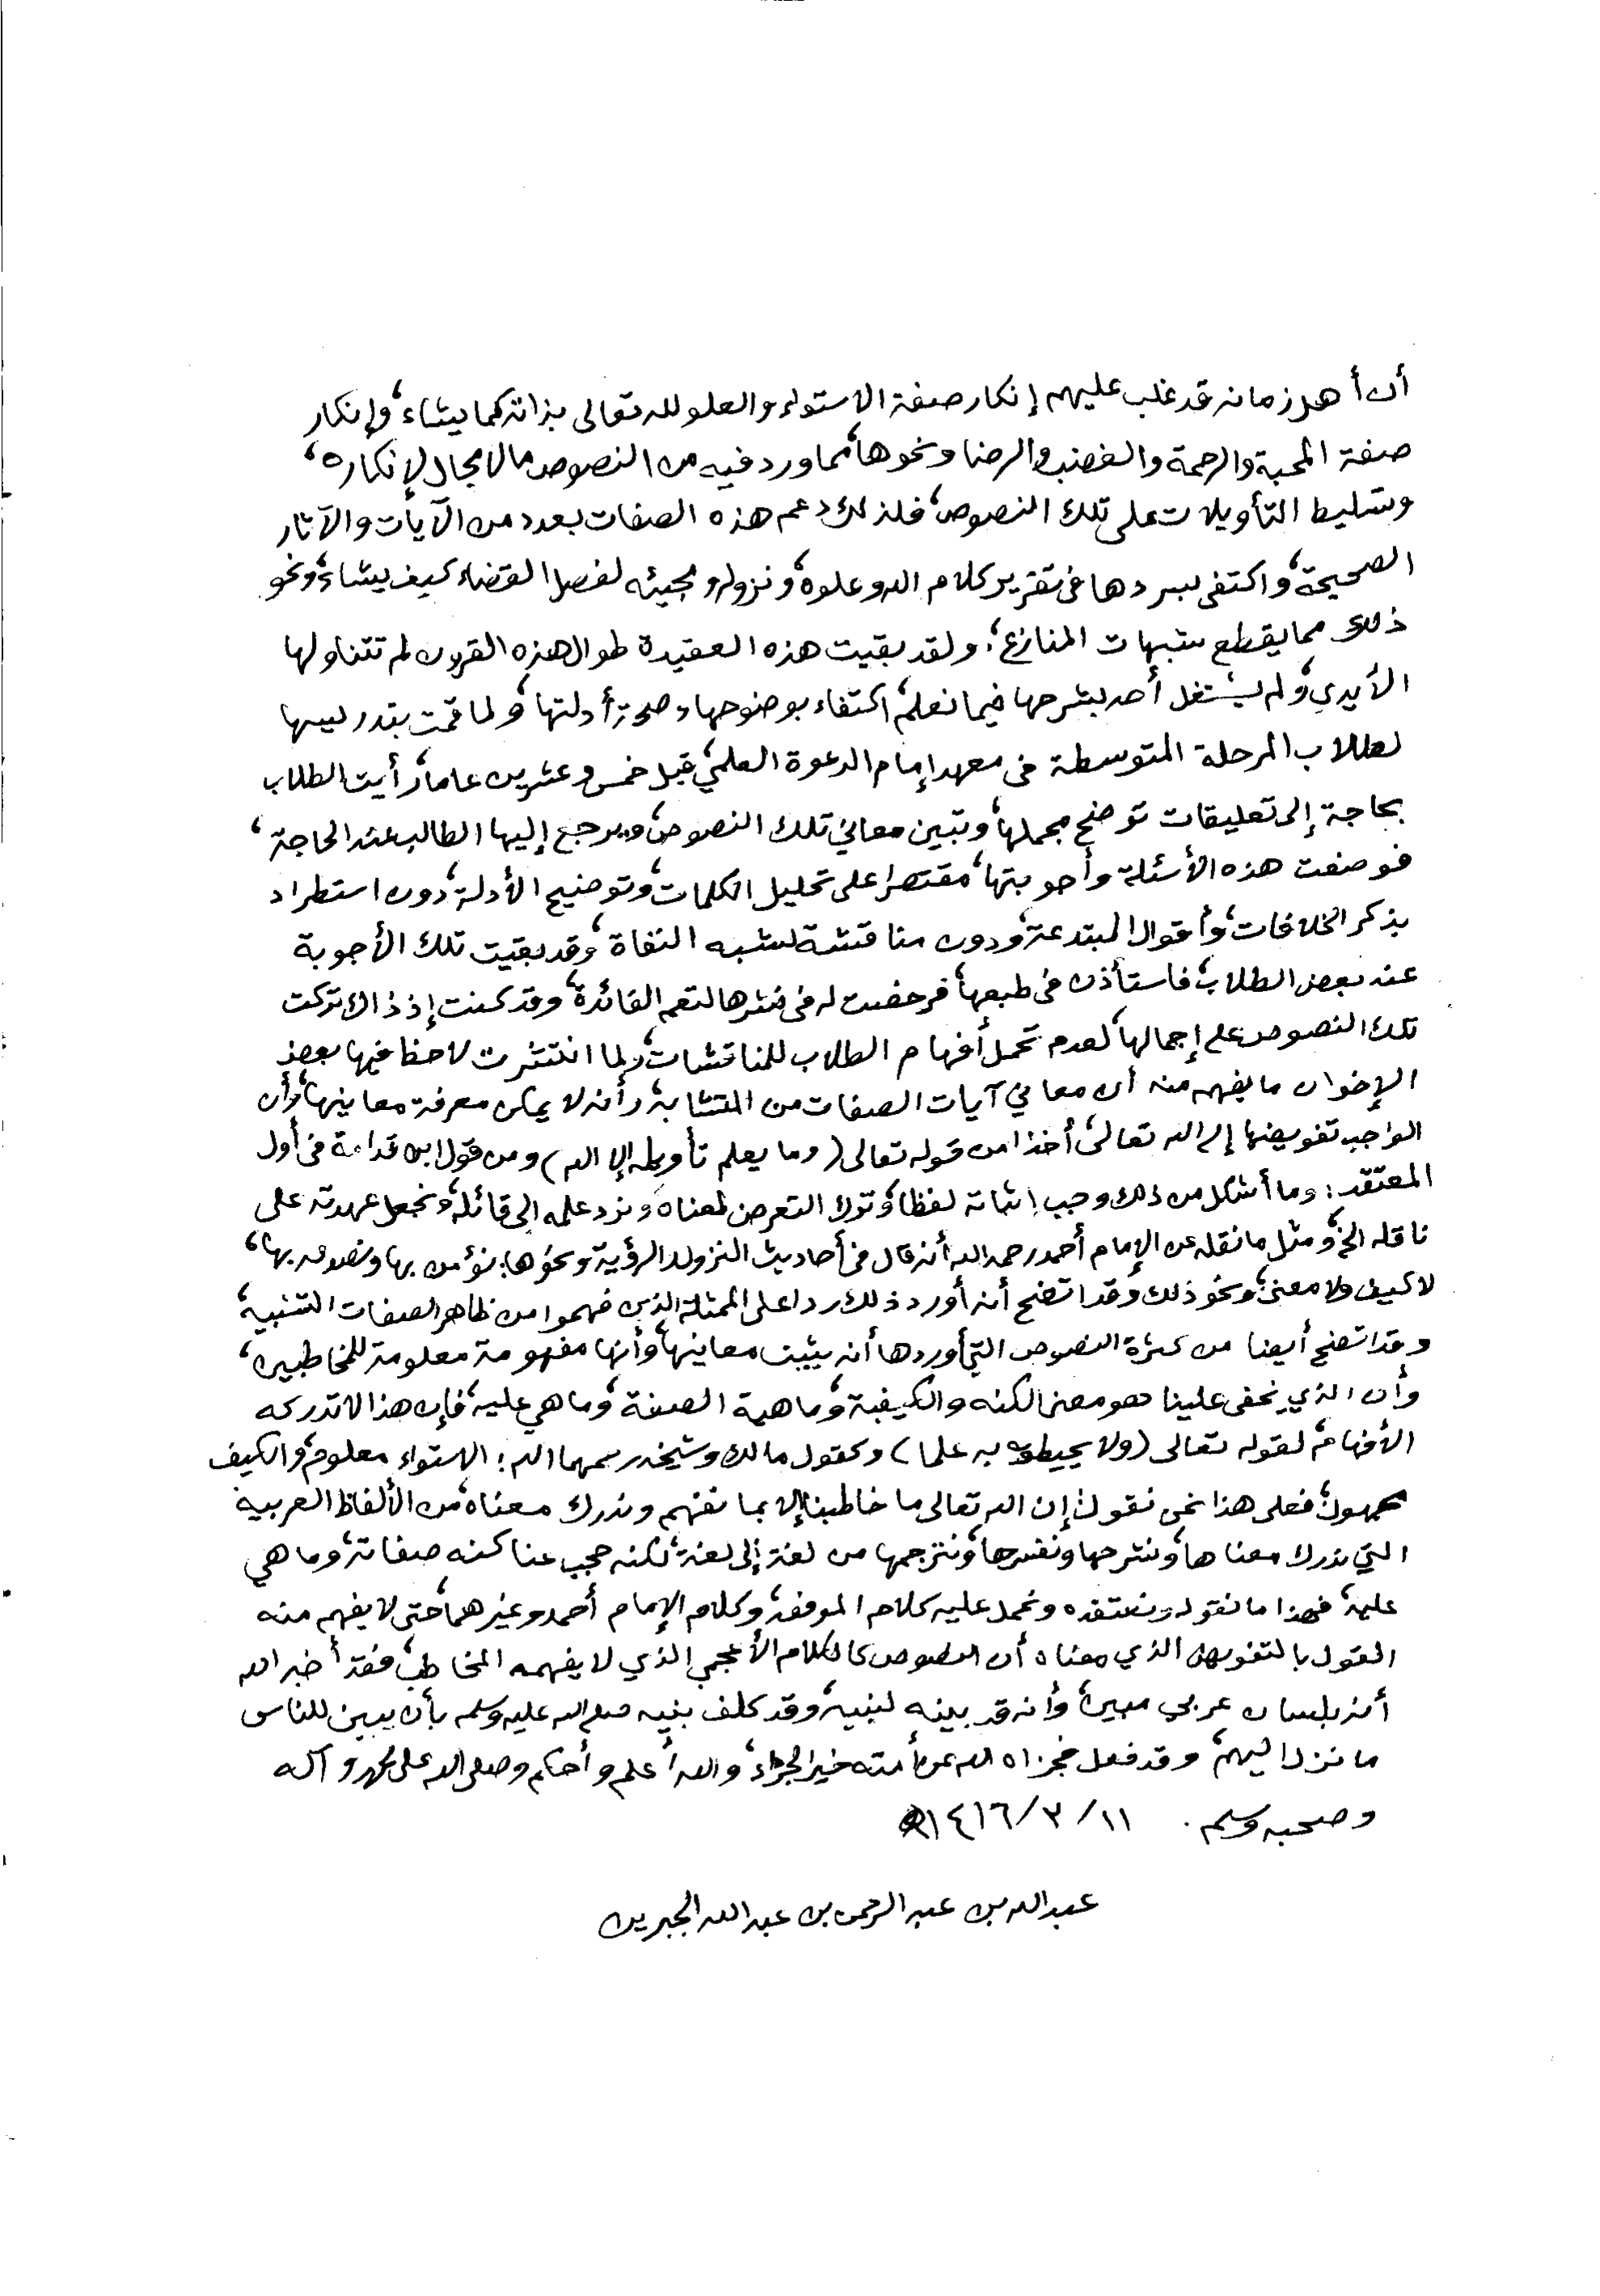 أن أهل زمانه قد غلب عليهم إنكار صفة الاستواء والعلو لله تعالى بذاته كما يشاء، وإنكار
صفة المحبة والرحمة والغضب والرضا ونحوها، مما ورد فيه من النصوص ما لا مجال لإنكاره،
وتسليط التأويلات على تلك النصوص، فلذلك دعم هذه الصفات بعدد من الآيات والآثار
الصحيحة، واكتفى بسردها في تقرير كلام الله وعلوه، ونزوله ومجيئه لفصل القضاء كيف يشاء، ونحو
ذلك مما يقطع شبهات المنازع، ولقد بقيت هذه العقيدة طوال هذه القرون لم تتناولها
الأيدي، ولم يشتغل أحد بشرحها فيما نعلم، اكتفاء بوضوحها وصحة أدلتها، ولما قمت بتدريسها
لطلاب المرحلة المتوسطة في معهد إمام الدعوة العلمي، قبل خمس وعشرين عاما، رأيت الطلاب
بحاجة إلى تعليقات توضح مجملها، وتبين معاني تلك النصوص، ويرجع إليها الطالب عند الحاجة،
فوضعت هذه الأسئلة وأجوبتها، مقتصرا على تحليل الكلمات، وتوضيح الأدلة، دون استطراد
بذكر الخلافات، وأقوال المبتدعة، ودون مناقشة لشبه النفاة، وقد بقيت تلك الأجوبة
عند بعض الطلاب، فاستأذن في طبعها، فرخصت له في نشرها لتعم الفائدة، وقد كنت إذ ذاك تركت
تلك النصوص على إجمالها، لعدم تحمل أفهام الطلاب للمناقشات، ولما انتشرت لاحظ فيها بعض
الإخوان ما يفهم منه أن معاني آيات الصفات من المتشابه، وأنه لا يمكن معرفة معانيها، وأن
الواجب تفويضها إلى الله تعالى، أخذا من قوله تعالى (وما يعلم تأويله إلا الله) ومن قول ابن قدامة في أول
المعتقد: وما أشكل من ذلك وجب إثباته لفظا، وترك التعرض لمعناه، ونرد علمه إلى قائله، ونجعل عهدته على
ناقله الخ، ومثل ما نقله عن الإمام أحمد رحمه الله أنه قال في أحاديث النزول والرؤية ونحوها: نؤمن بها ونصدق بها،
لا كيف ولا معنى، ونحو ذلك، وقد اتضح أنه أورد ذلك ردا على الممثلة الذين فهموا من ظاهر الصفات التشبيه،
وقد اتضح أيضا من كثرة النصوص التي أوردها أنه يثبت معانيها، وأنها مفهومة معلومة للمخاطبين،
وأن الذي يخفى علينا هو معنى الكنه والكيفية، وماهية الصفة، وما هي عليه، فإن هذا لا تدركه
الأفهام، لقوله تعالى (ولا يحيطون به علما) وكقول مالك وشيخه رحمهما الله: الاستواء معلوم، والكيف
مجهول، فعلى هذا نحن نقول: إن الله تعالى ما خاطبنا إلا بما نفهم وندرك معناه، من الألفاظ العربية
التي ندرك معناها، ونشرحها ونفسرها، ونترجمها من لغة إلى لغة، لكنه حجب عنا كنه صفاته، وما هي
عليه، فهذا ما نقوله ونعتقده ونحمل عليه كلام الموفق، وكلام الإمام أحمد وغيرهما، حتى لا يفهم منه
القول بالتفويض الذي معناه أن النصوص كالكلام الأعجمي الذي لا يفهمه المخاطب، فقد أخبر الله
أنه بلسان عربي مبين، وأنه قد بينه لنبيه، وقد كلف نبيه صلى الله عليه وسلم بأن يبين للناس
ما نزل إليهم، وقد فعل فجزاه الله عن أمته خير الجزاء، والله أعلم وأحكم وصلى الله على محمد وآله
وصحبه وسلم. ١١/٣/١٤١٦هـ
عبد الله بن عبد الرحمن بن عبد الله الجبرين